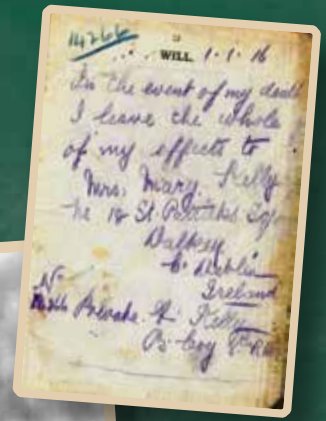 14266
WILL. 1-1-16
In the event of my death
I leave the whole
of my effects to
Mrs. Mary Kelly
18 St. Patricks
Dalkey
Co. Dublin
Ireland
Private Kelly
Coy